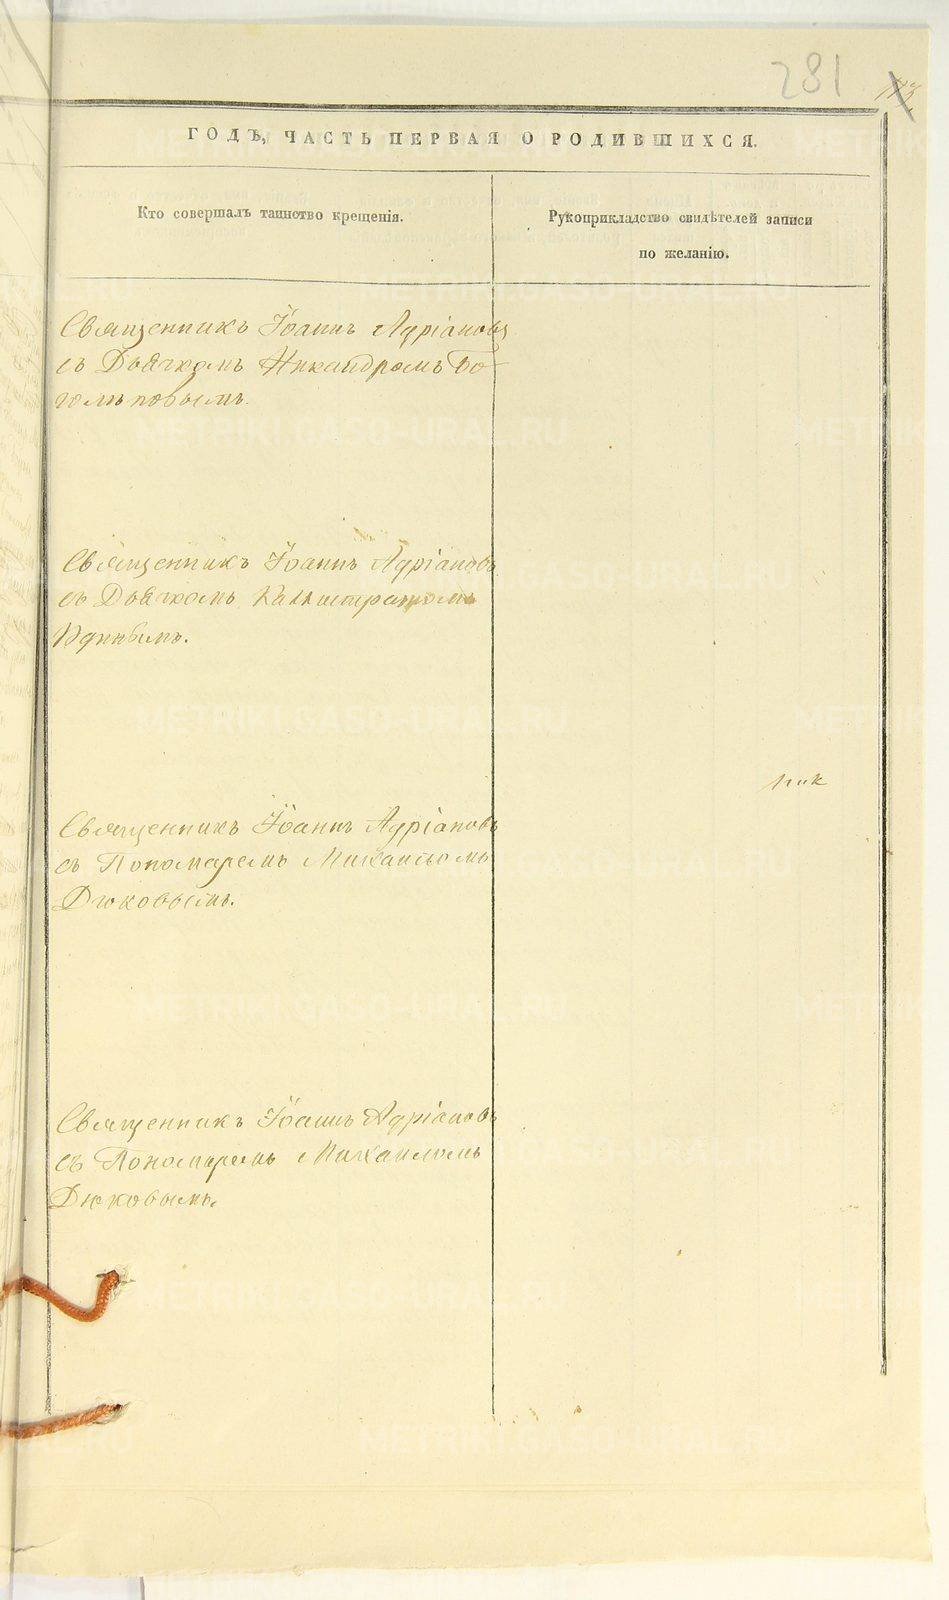 281
ГОДЪ, ЧАСТЬ ПЕРВАЯ О РОДИВШИХСЯ.
Кто совершалъ таинство крещенія.
Рукоприкладство свидѣтелей записи
по желанію.
Священникъ Іоаннъ Адріановъ
съ Дьячкомъ Никандромъ Бо-
голѣповымъ.
Священникъ Іоаннъ Адріановъ
съ Дьячкомъ Каллистратомъ
Священникъ Іоаннъ Адріановъ
съ Пономаремъ Михаиломъ
Дюковымъ.
Священникъ Іоаннъ Адріановъ
съ Пономаремъ Михаиломъ
Дюковымъ.
METRIKI.GASO-URAL.RU